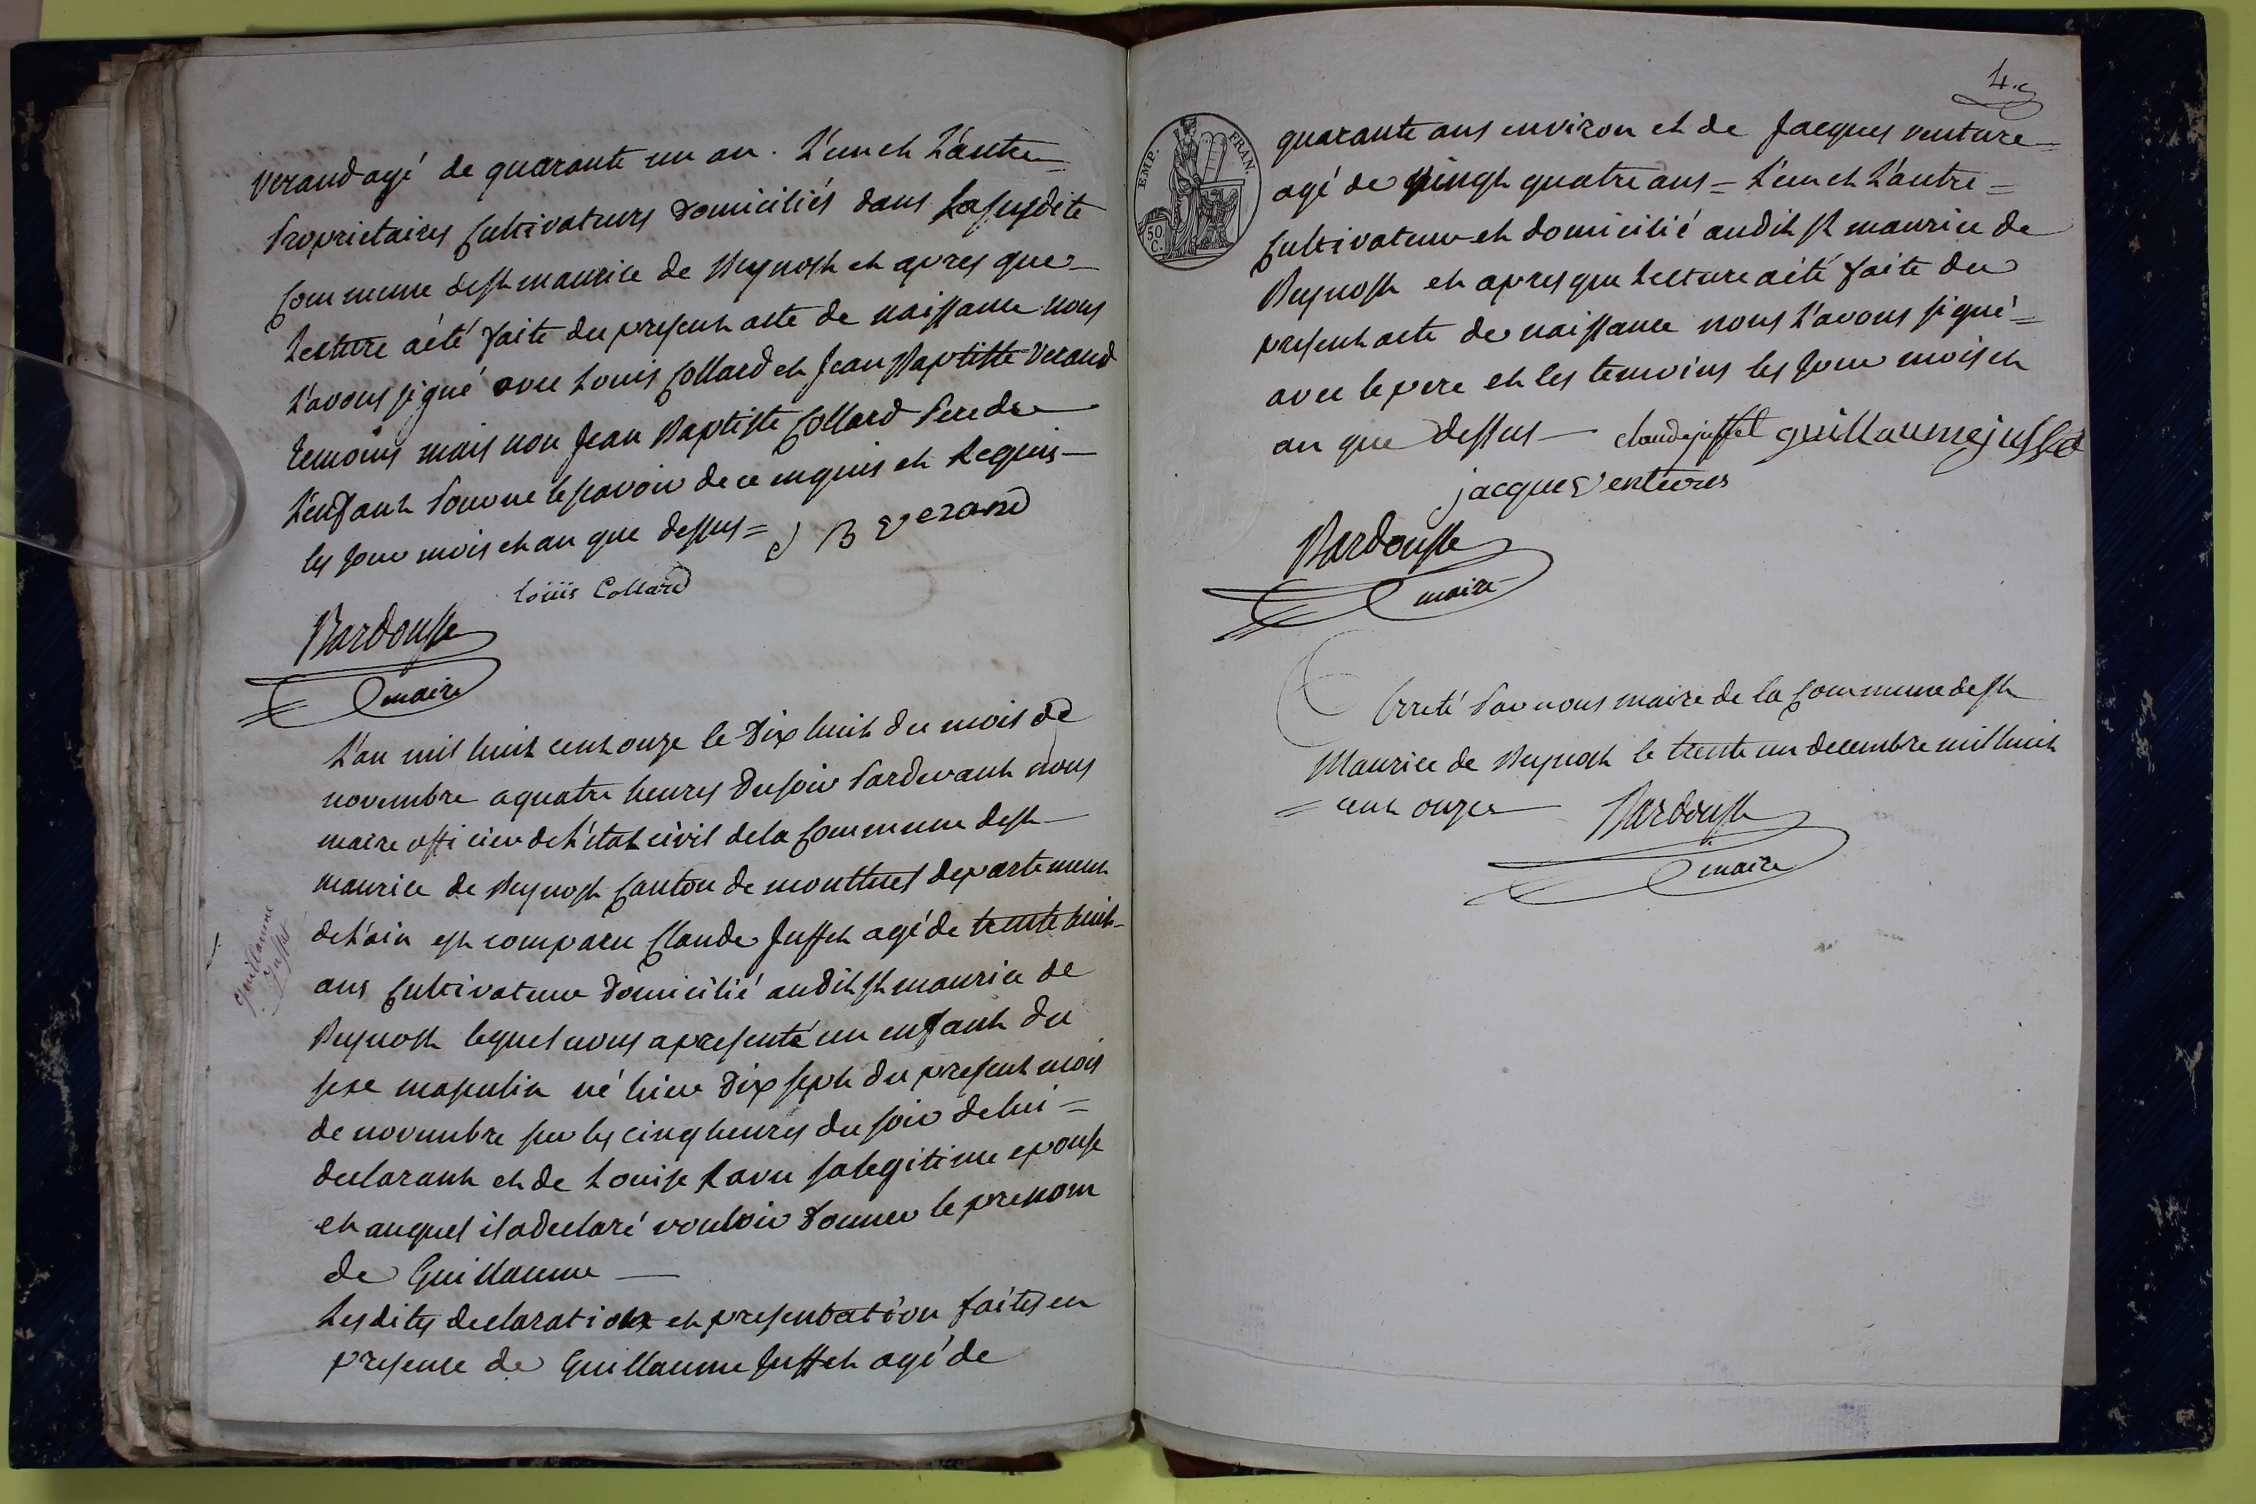 Verand agé de quarante un an. L'un et L'autre =
Proprietaires Cultivateurs domiciliés dans La susdite
Commune de st maurice de Beynost et apres que
Lecture a été faite du present acte de naissance nous
L'avons signé avec Louis Collard et Jean Baptiste Verand
temoins mais non Jean Baptiste Collard Pere de
L'enfant Pour ne le savoir de ce enquis et Requis
les jour mois et an que dessus = J B Verand
Louis Collard
Bardousse
maire
L'an mil huit cent onze le Dix huit du mois de
novembre a quatre heures du soir Pardevant nous
maire officier de L'état civil de la Commune de st
maurice de Beynost Canton de montluel departement
de L'ain est comparu Claude Juffet agé de trente huit
ans Cultivateur domicilié audit st maurice de
Beynost lequel nous a presenté un enfant du
sexe masculin né hier Dix sept du present mois
de novembre sur les cinq heures du soir de lui =
declarant et de Louise Ravu sa legitime epouse
et auquel il a declaré vouloir donner le prenom
de Guillaume
Lesdites declaration et presentation faites en
presence de Guillaume Juffet agé de
Guillaume
Juffet
4.e
EMP. FRAN.
50
C.
quarante ans environ et de Jacques Venture =
agé de vingt quatre ans = L'un et L'autre =
Cultivateur et domicilié audit st maurice de
Beynost et apres que Lecture a été faite du
present acte de naissance nous L'avons signé =
avec le pere et les temoins les jour mois et
an que dessus claude juffet guillaume juffet
jacques Ventures
Bardousse
maire
Arreté Par nous maire de la Commune de st
Maurice de Beynost le trente un decembre mil huit
= cent onze Bardousse
maire